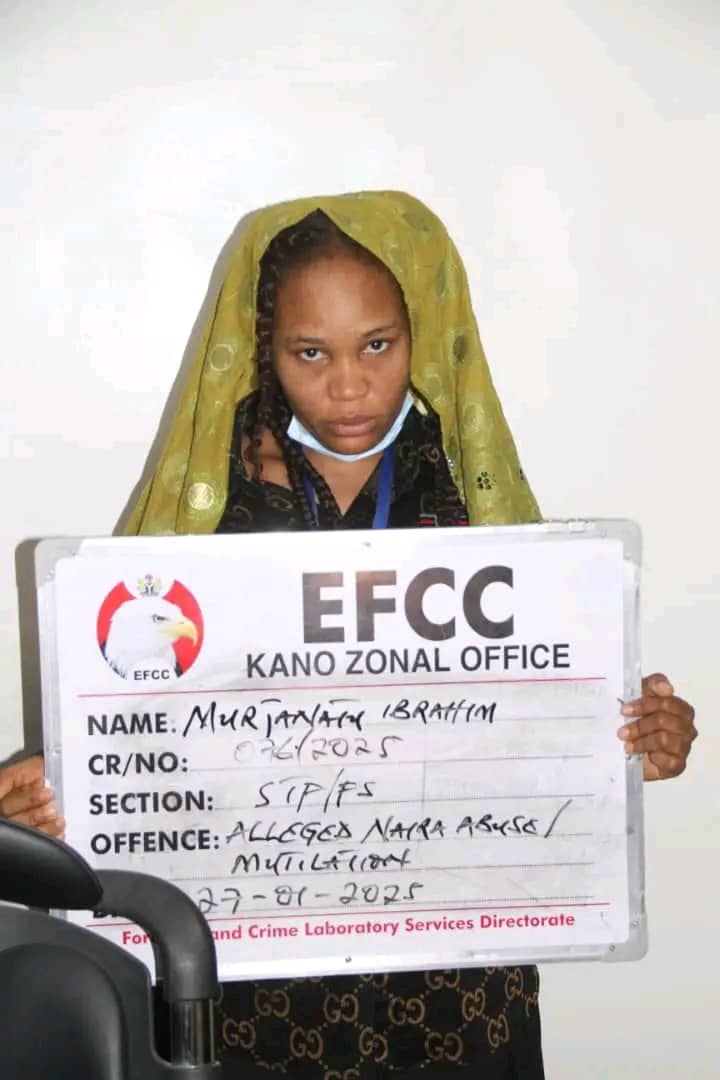 EFCC
EFCC
KANO ZONAL OFFICE
NAME: MURJANATU IBRAHIM
CR/NO: 076/2025
SECTION: STF/FS
OFFENCE: ALLEGED NAIRA ABUSE/
MUTILATION
27-01-2025
and Crime Laboratory Services Directorate